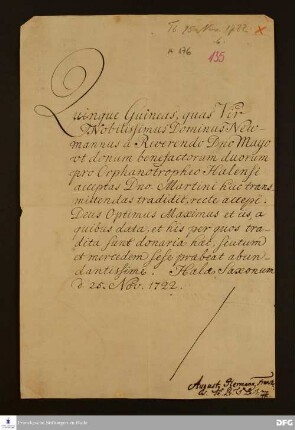 A 176
135
Quinque Guineas, quas Vir
Nobilissimus Dominus Neu-
mannus a Reverendo Dno Mayo
vt donum benefactorum duorum
pro Orphanotropheo Halensi
acceptas Dno. Martini huc trans-
mittendas tradidit, recte accepi.
Deus Optimus Maximus et iis, a
quibus data, et his per quos tra-
dita sunt donaria hæc, scutum
et mercedem sese præbeat abun-
dantissime. Halæ Saxonum
d 25. Nov. 1722.
August
DFG